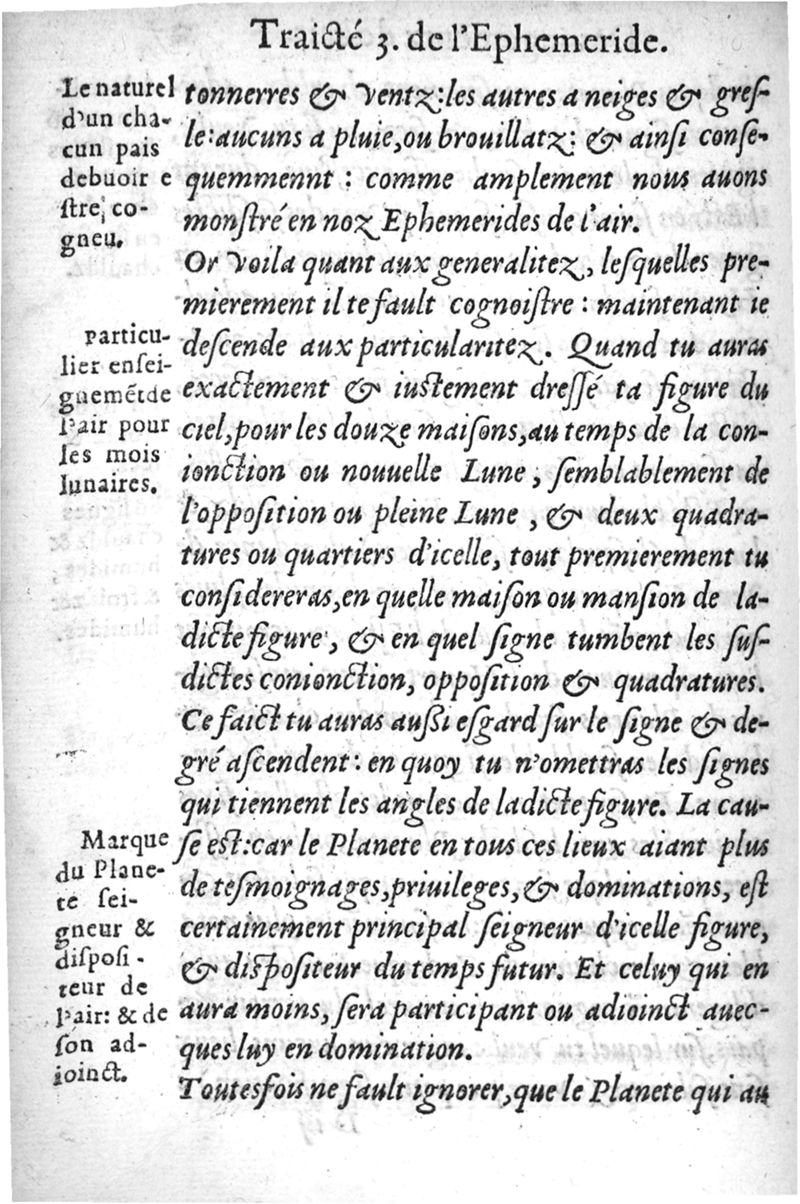 Traicté 3. de l'Ephemeride.
Le naturel
d'un cha-
cun pais
debuoir e
ſtre, co-
gneu.
tonnerres & Ventz: les autres a neiges & greſ-
le: aucuns a pluie, ou brouillatz: & ainſi conſe-
quemmennt : comme amplement nous auons
monſtré en noz Ephemerides de l'air.
Or Voila quant aux generalitez, leſquelles pre-
mierement il te fault cognoiſtre : maintenant ie
Particu-
lier enſei-
guemẽt de
l'air pour
les mois
lunaires.
deſcende aux particularitez. Quand tu auras
exactement & iuſtement dreſſé ta figure du
ciel, pour les douze maiſons, au temps de la con-
ionction ou nouuelle Lune, ſemblablement de
l'oppoſition ou pleine Lune, & deux quadra-
tures ou quartiers d'icelle, tout premierement tu
conſidereras, en quelle maiſon ou manſion de la-
dicte figure, & en quel ſigne tumbent les ſuſ-
dictes conionction, oppoſition & quadratures.
Ce faict tu auras auſſi eſgard ſur le ſigne & de-
gré aſcendent: en quoy tu n'omettras les ſignes
qui tiennent les angles de ladicte figure. La cau-
Marque
du Plane-
te ſei-
gneur &
diſpoſi-
teur de
l'air: & de
ſon ad-
ioinct.
ſe eſt: car le Planete en tous ces lieux aiant plus
de teſmoignages, priuileges, & dominations, eſt
certainement principal ſeigneur d'icelle figure,
& diſpoſiteur du temps futur. Et celuy qui en
aura moins, ſera participant ou adioinct auec-
ques luy en domination.
Touteſfois ne fault ignorer, que le Planete qui au